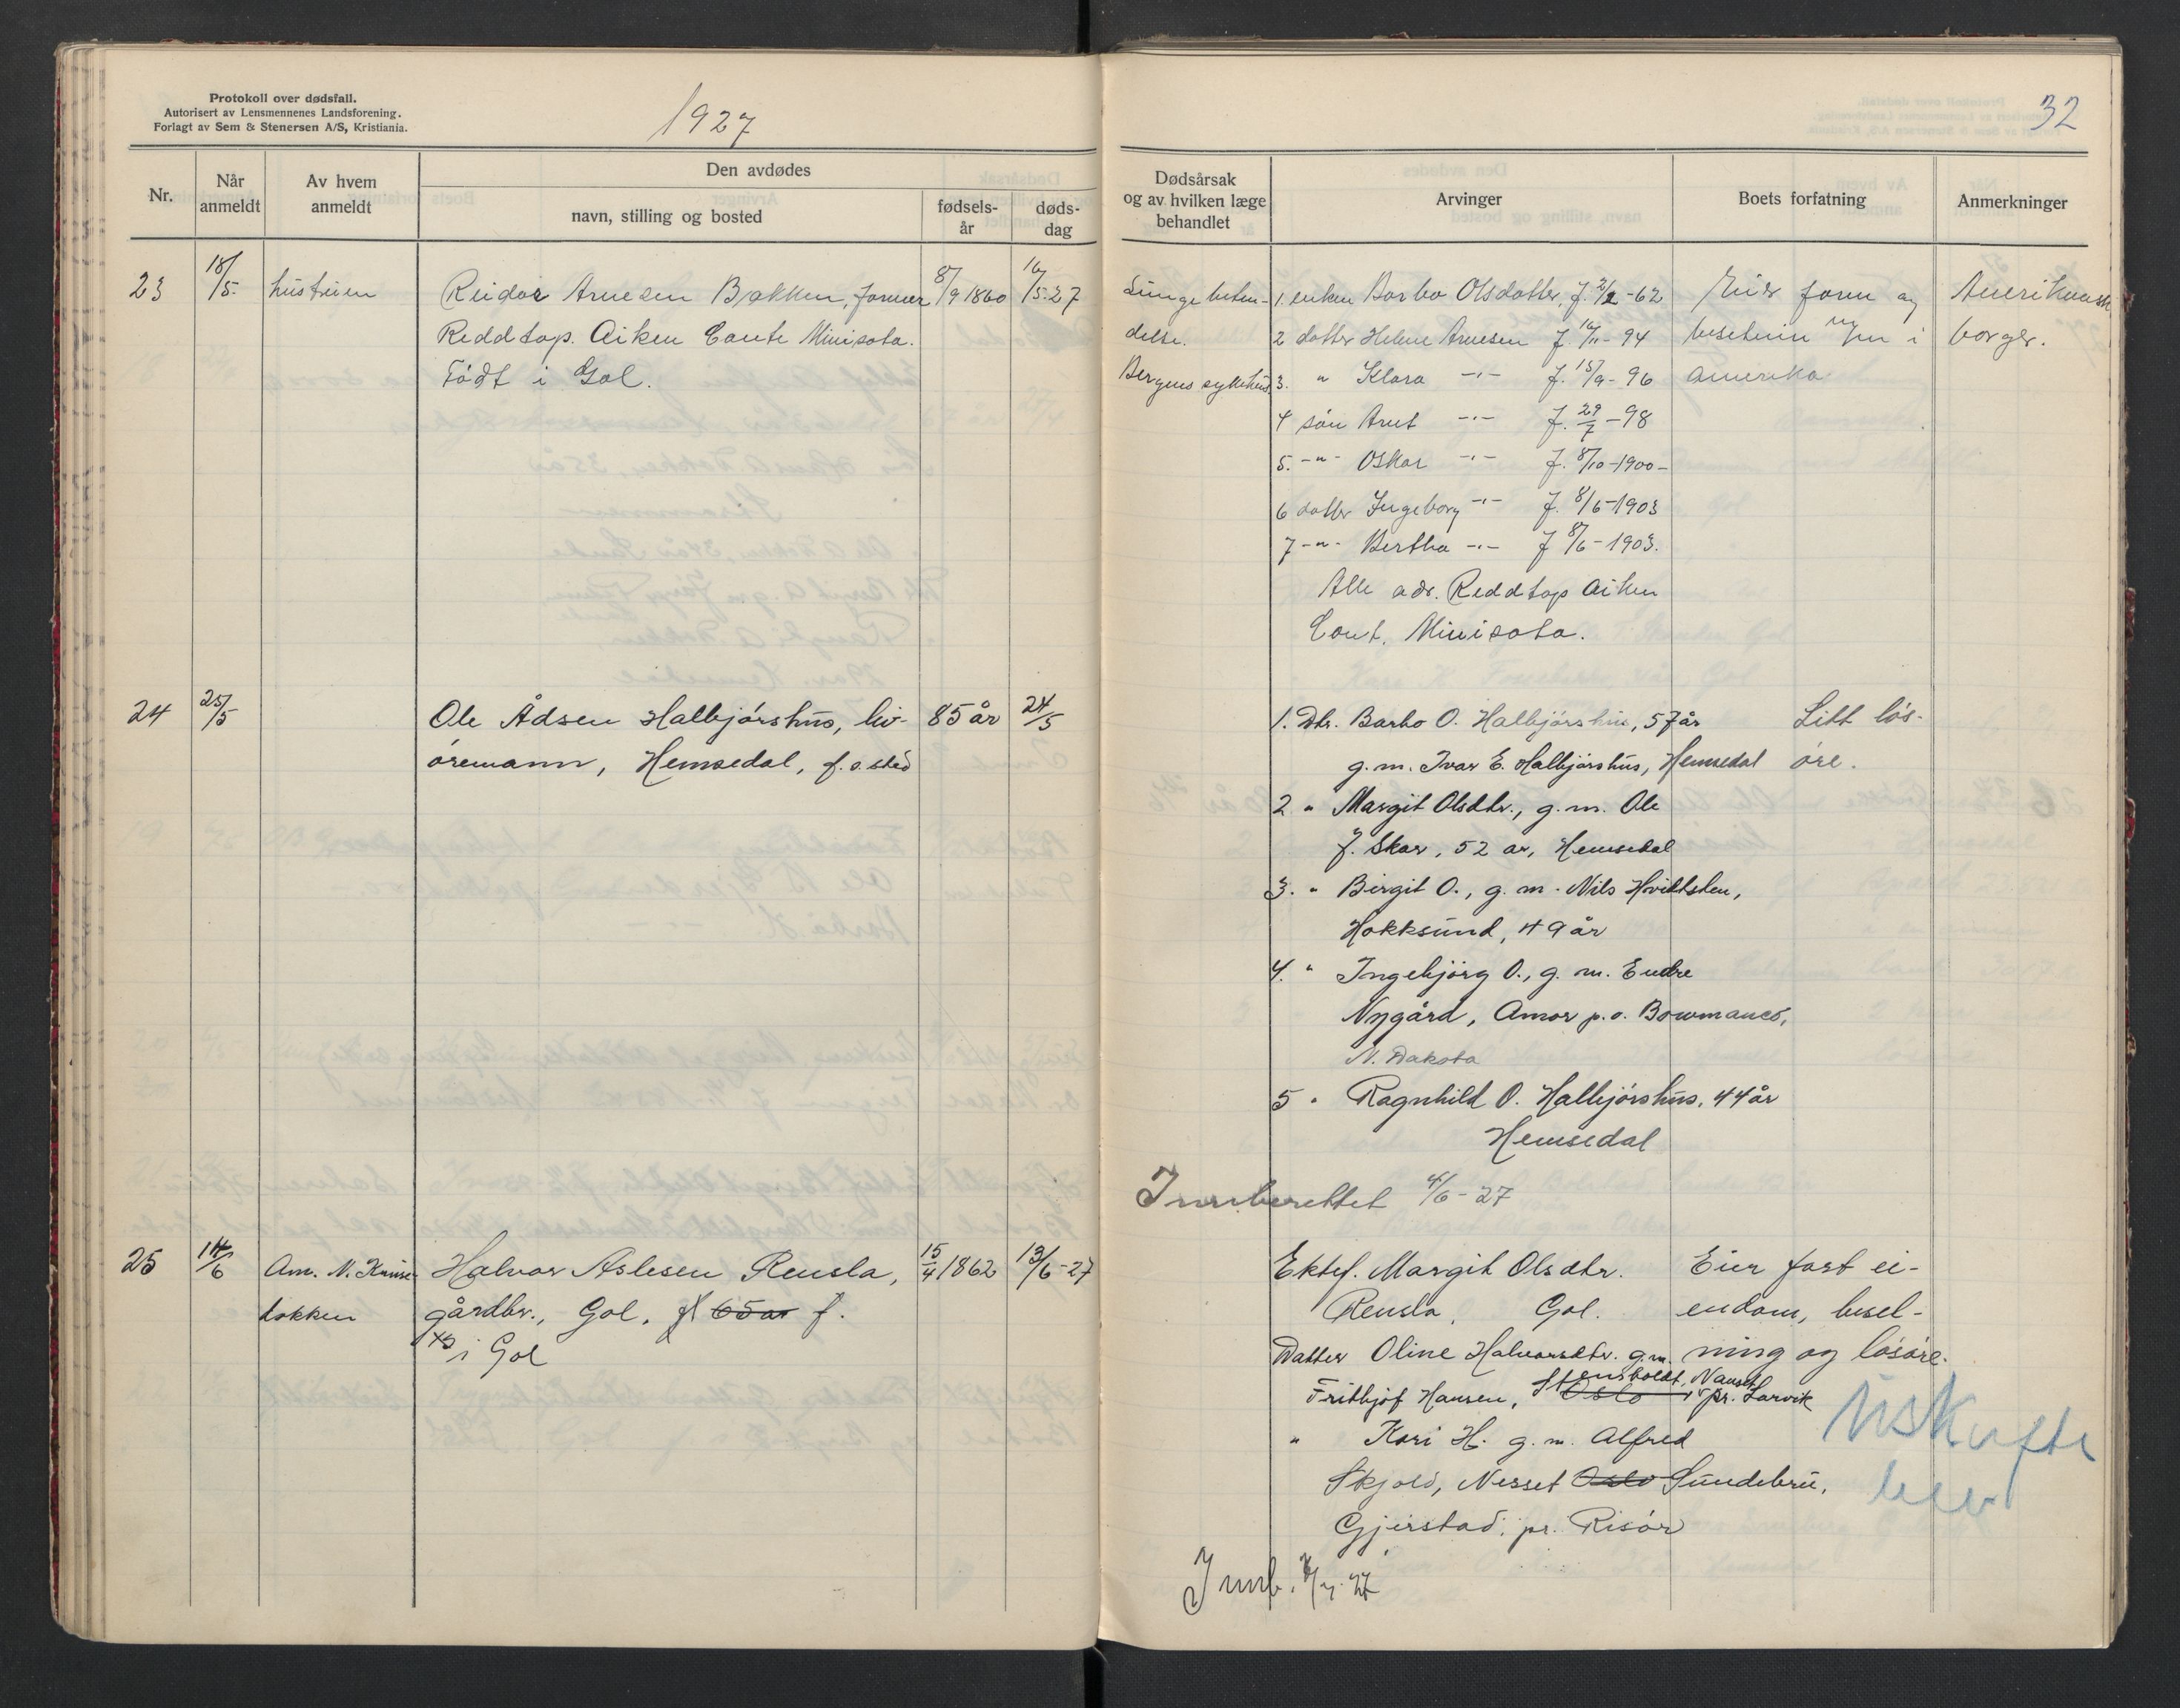 Protokoll over dødsfall.
Autorisert av Lensmennenes Landsforening.
Forlagt av Sem & Stenersen A/S, Kristiania.
1927
32
Nr.
Når anmeldt
Av hvem anmeldt
Den avdødes
navn, stilling og bosted
fødsels-år
døds-dag
Dødsårsak og av hvilken læge behandlet
Arvinger
Boets forfatning
Anmerkninger
23 18/5. hustruen Reidar Arnesen Bakken, farmer 8/9 1860 16/5-27
Reddtop. Aiken Counte Minisota.
Født i Gol.
Lungebeten-
delse.
Bergens sykehus
1. enken Barbo Olsdatter, f. 2/2-62
2 datter Helene Arnesen f. 16/11-94
3. " Klara -"- f. 15/9-96
4 søn Arnt -"- f. 29/7-98
5. -"- Oskar -"- f. 8/10-1900-
6 datter Ingeborg -"- f. 8/6-1903
7 -"- Bertha -"- f 8/6-1903.
Alle adr. Reddtop Aiken
Count. Minisota.
Eier farm og
besetning i
Amerika
Amerikansk
borger.
24 25/5 Ole Ådsen Halbjørshus, liv- 85 år 24/5
øremann, Hemsedal, f. s. sted
1. Dtr. Barbo O. Halbjørshus, 57 år
g.m. Ivar E. Halbjørshus, Hemsedal
2 " Margit Olsdtr., g. m. Ole
J. Skar, 52 år, Hemsedal
3. " Birgit O., g. m. Nils Hvittsten,
Hokksund, 49 år
4. " Ingebjørg O., g. m. Endre
Nygård, Amor p.o. Bowmanco,
N. Dakota
5 " Ragnhild O. Halbjørshus, 44 år
Hemsedal
Litt løs-
øre.
Innberettet 4/6-27
25 14/6 Am. N. Kruse- Halvor Aslesen Rensla, 15/4 1862 13/6-27
dokken gårdbr., Gol, 65 år f.
i Gol
Ektef. Margit Olsdtr.
Rensla, Gol.
Datter Oline Halvorsdtr. g.m.
Stensholdt, Nanset
Frithjof Hansen, Oslo pr. Larvik
" Kari H. g. m. Alfred
Skjold, Nesset Oslo Sundebru,
Gjerstad, pr. Risør
Eier fast ei-
endom, besel-
ning og løsøre.
Uskifte
bev
Innb. 7/7-27